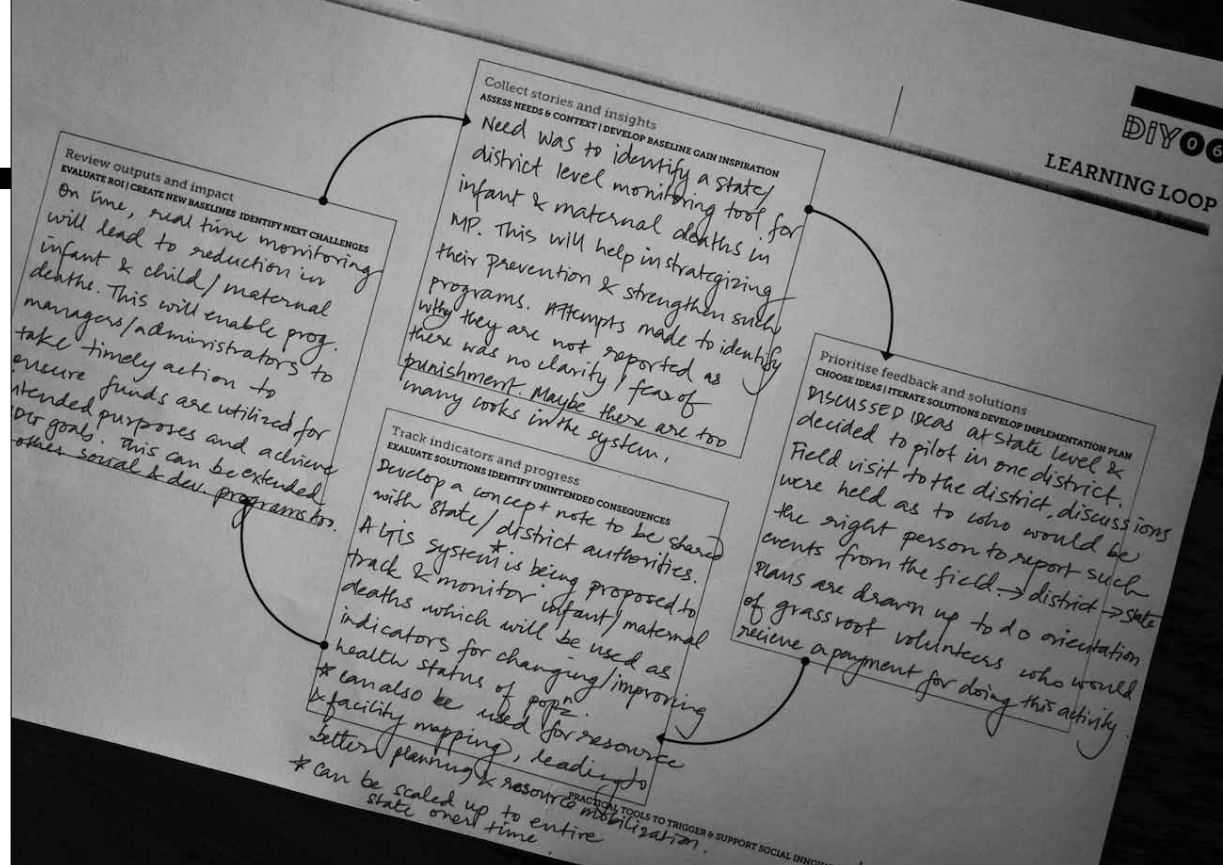 DIY06
LEARNING LOOP
Collect stories and insights
ASSESS NEEDS & CONTEXT | DEVELOP BASELINE GAIN INSPIRATION
Need was to identify a state/
district level monitoring tool for
infant & maternal deaths in
MP. This will help in strategizing
their prevention & strengthen such
programs. Attempts made to identify
why they are not reported as
there was no clarity / fear of
punishment. Maybe there are too
many cooks in the system.
Prioritise feedback and solutions
CHOOSE IDEAS | ITERATE SOLUTIONS DEVELOP IMPLEMENTATION PLAN
DISCUSSED IDEAS at State level &
decided to pilot in one district.
Field visit to the district, discussions
were held as to who would be
the right person to report such
events from the field → district → state
Plans are drawn up to do orientation
of grassroot volunteers who would
recieve a payment for doing this activity.
Track indicators and progress
EXALUATE SOLUTIONS IDENTIFY UNINTENDED CONSEQUENCES
Develop a concept note to be shared
with State/district authorities.
A GIS system* is being proposed to
track & monitor infant/maternal
deaths which will be used as
indicators for changing/improving
health status of popn.
* can also be used for resource
& facility mapping, leading to
better planning & resource mobilization.
* can be scaled up to entire
state over time.
Review outputs and impact
EVALUATE ROI | CREATE NEW BASELINES IDENTIFY NEXT CHALLENGES
On time, real time monitoring
will lead to reduction in
infant & child/maternal
deaths. This will enable prog.
managers/administrators to
take timely action to
ensure funds are utilized for
intended purposes and achieve
goals. This can be extended
other social & dev. programs too.
PRACTICAL TOOLS TO TRIGGER & SUPPORT SOCIAL